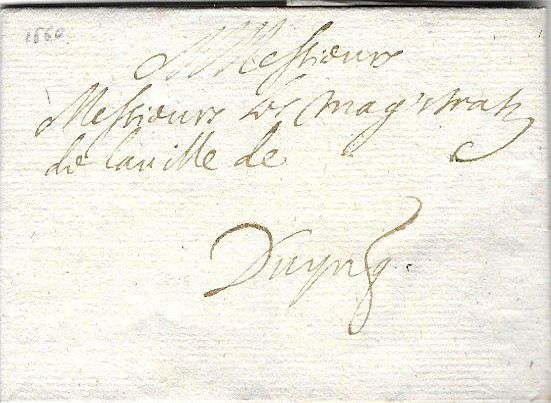 1660
A Messieurs
Messieurs les magistratz
de la ville de